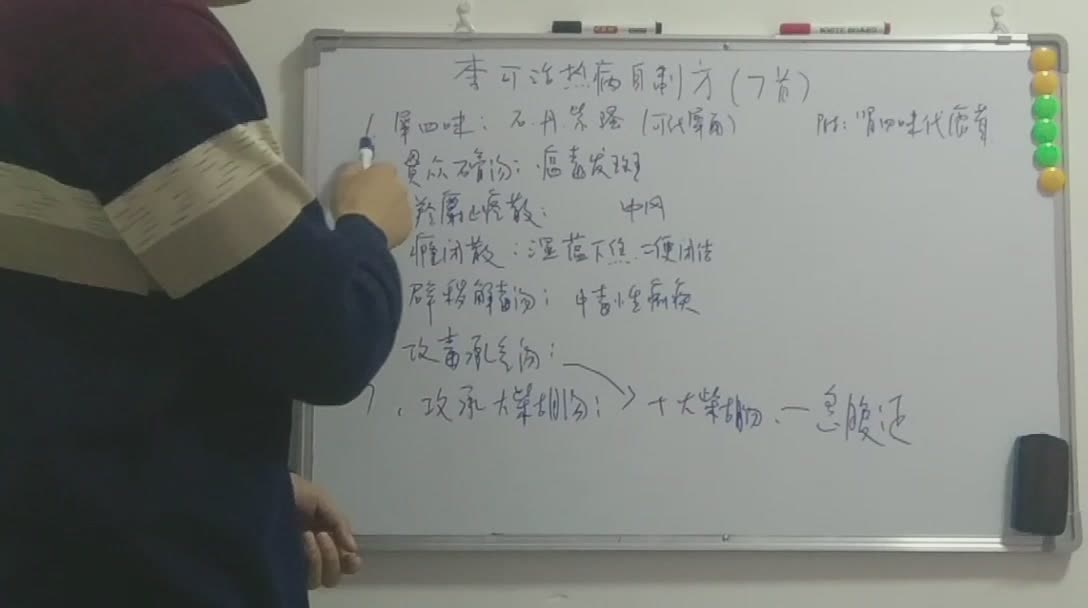 李可治热病自制方(7首)
1 犀四味：石.丹.紫. (可代犀角) 附：肾四味代
贯众石膏汤：瘟毒发斑
羚麝止痉散： 中风
癃闭散：湿蕴下焦.二便闭结
辟秽解毒汤：中毒性痢疾
攻毒承气汤：
7、攻承大柴胡汤：→ +大柴胡汤、一急腹证
WHITE BOARD